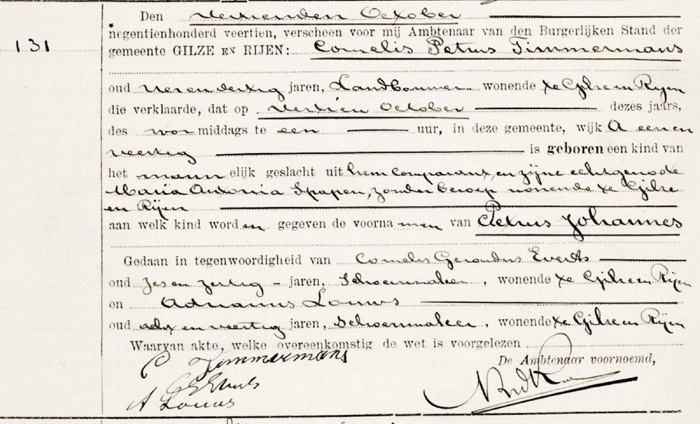 Den veertienden October
131
negentienhonderd veertien, verscheen voor mij Ambtenaar van den Burgerlijken Stand der
gemeente GILZE EN RIJEN: Cornelis Petrus Timmermans
oud vier en dertig jaren, Landbouwer wonende te Gilze en Rijen
die verklaarde, dat op veertien October dezes jaars,
des voor middags te een uur, in deze gemeente, wijk A een en
veertig is geboren een kind van
het mann elijk geslacht uit hem comparant, en zijne echtgenoote
Maria Antonia Spapen, zonder beroep wonende te Gilze
en Rijen
aan welk kind worden gegeven de voorna men van Petrus Johannes
Gedaan in tegenwoordigheid van Cornelis Gerardus Everts
oud zes en jaren, Schoenmaker, wonende te Gilze en Rijen
en Adrianus Louws
oud acht en veertig jaren, Schoenmaker, wonende te Gilze en Rijen
Waarvan akte, welke overeenkomstig de wet is voorgelezen
C Timmermans
De Ambtenaar voornoemd,
CG Everts
A Louws